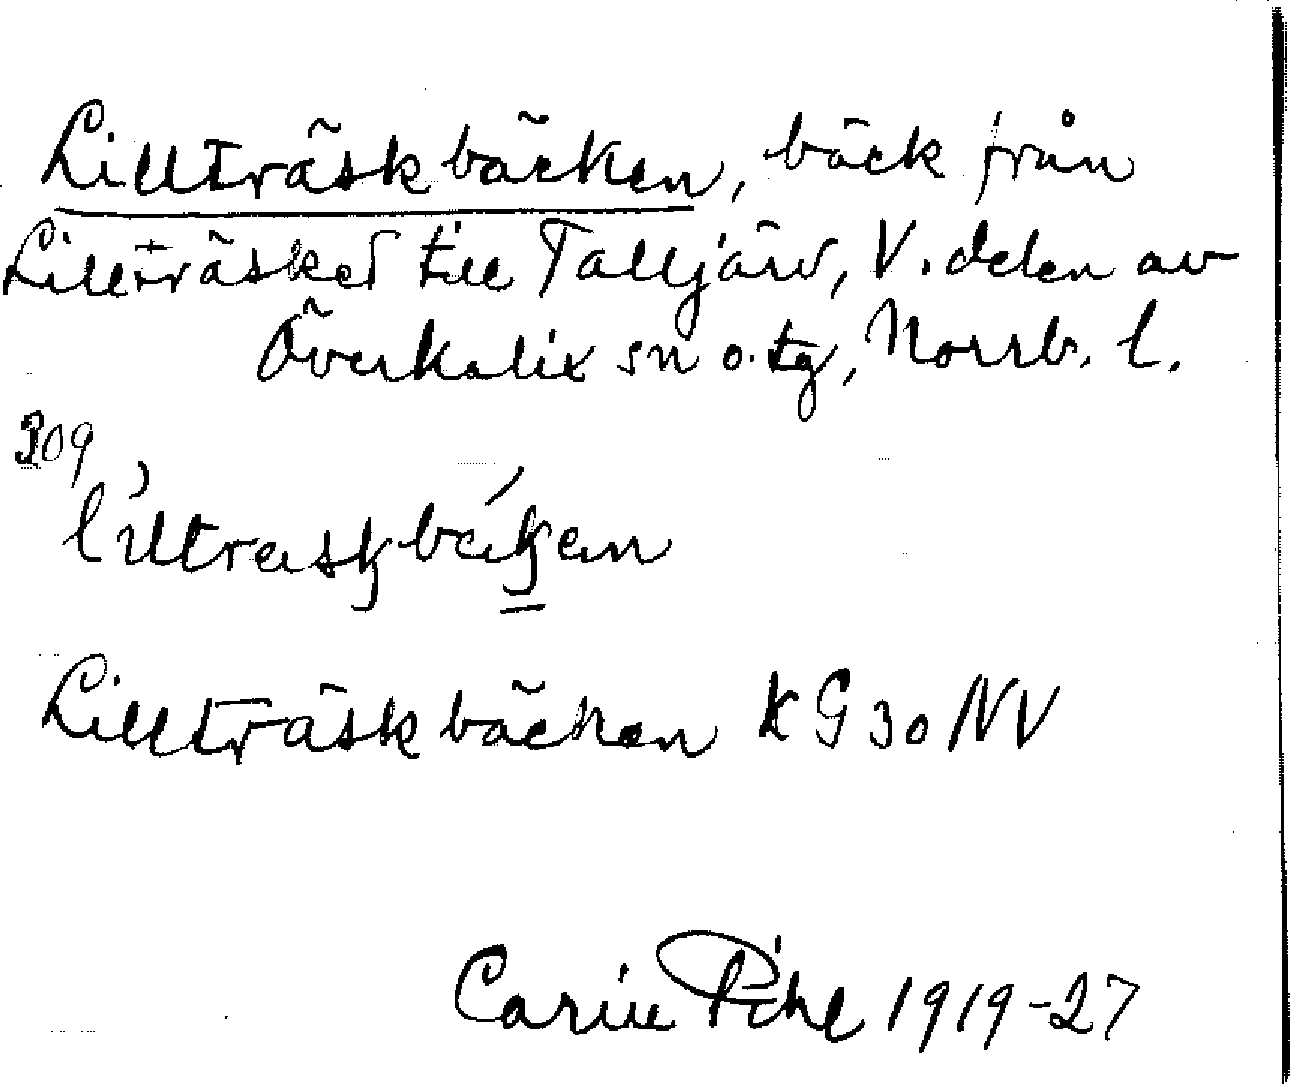 Lillträskbäcken, bäck från
Lillträsket till Talljärv, V. delen av
Överkalix sn o. tg, Norrb. l.
309
lilltraskbäken
Lillträskbäcken KG30NV
Carin Pihl 1919-27